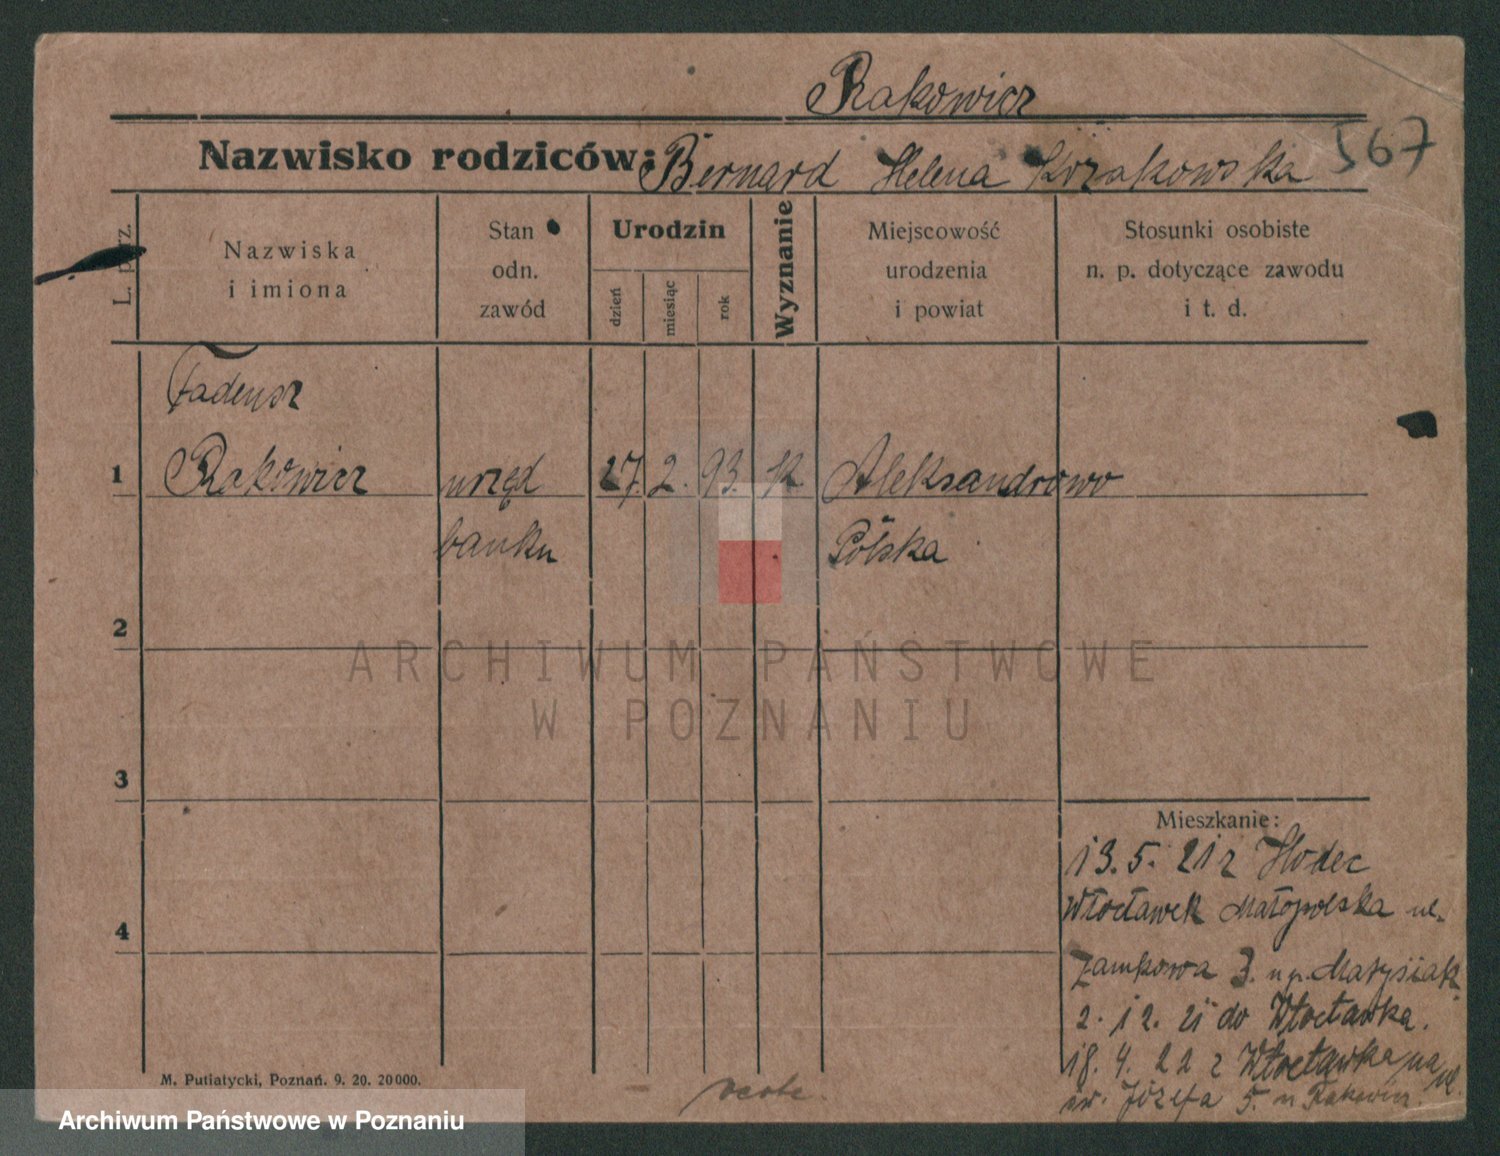 Rakowicz
Nazwisko rodziców: Bernard Helena Korzakowska 567
L. porz.
Nazwiska
i imiona
Stan
odn.
zawód
Urodzin
dzień
miesiąc
rok
Wyznanie
Miejscowość
urodzenia
i powiat
Stosunki osobiste
n. p. dotyczące zawodu
i t. d.
Tadeusz
1 Rakowicz urzęd 27. 2. 93. K Aleksandrowo
banku Polska
2
ARCHIWUM PAŃSTWOWE
W POZNANIU
3
Mieszkanie:
13. 5. 21 z
Włocławek Małopolska ul.
4
Zamkowa 3. u p. Matysiak
2. 12. 21 do Włocławka.
18. 4. 22 z Włocławka na ul.
św. Józefa 5. u Rakowicz.
verte.
M. Putiatycki, Poznań. 9. 20. 20000.
Archiwum Państwowe w Poznaniu